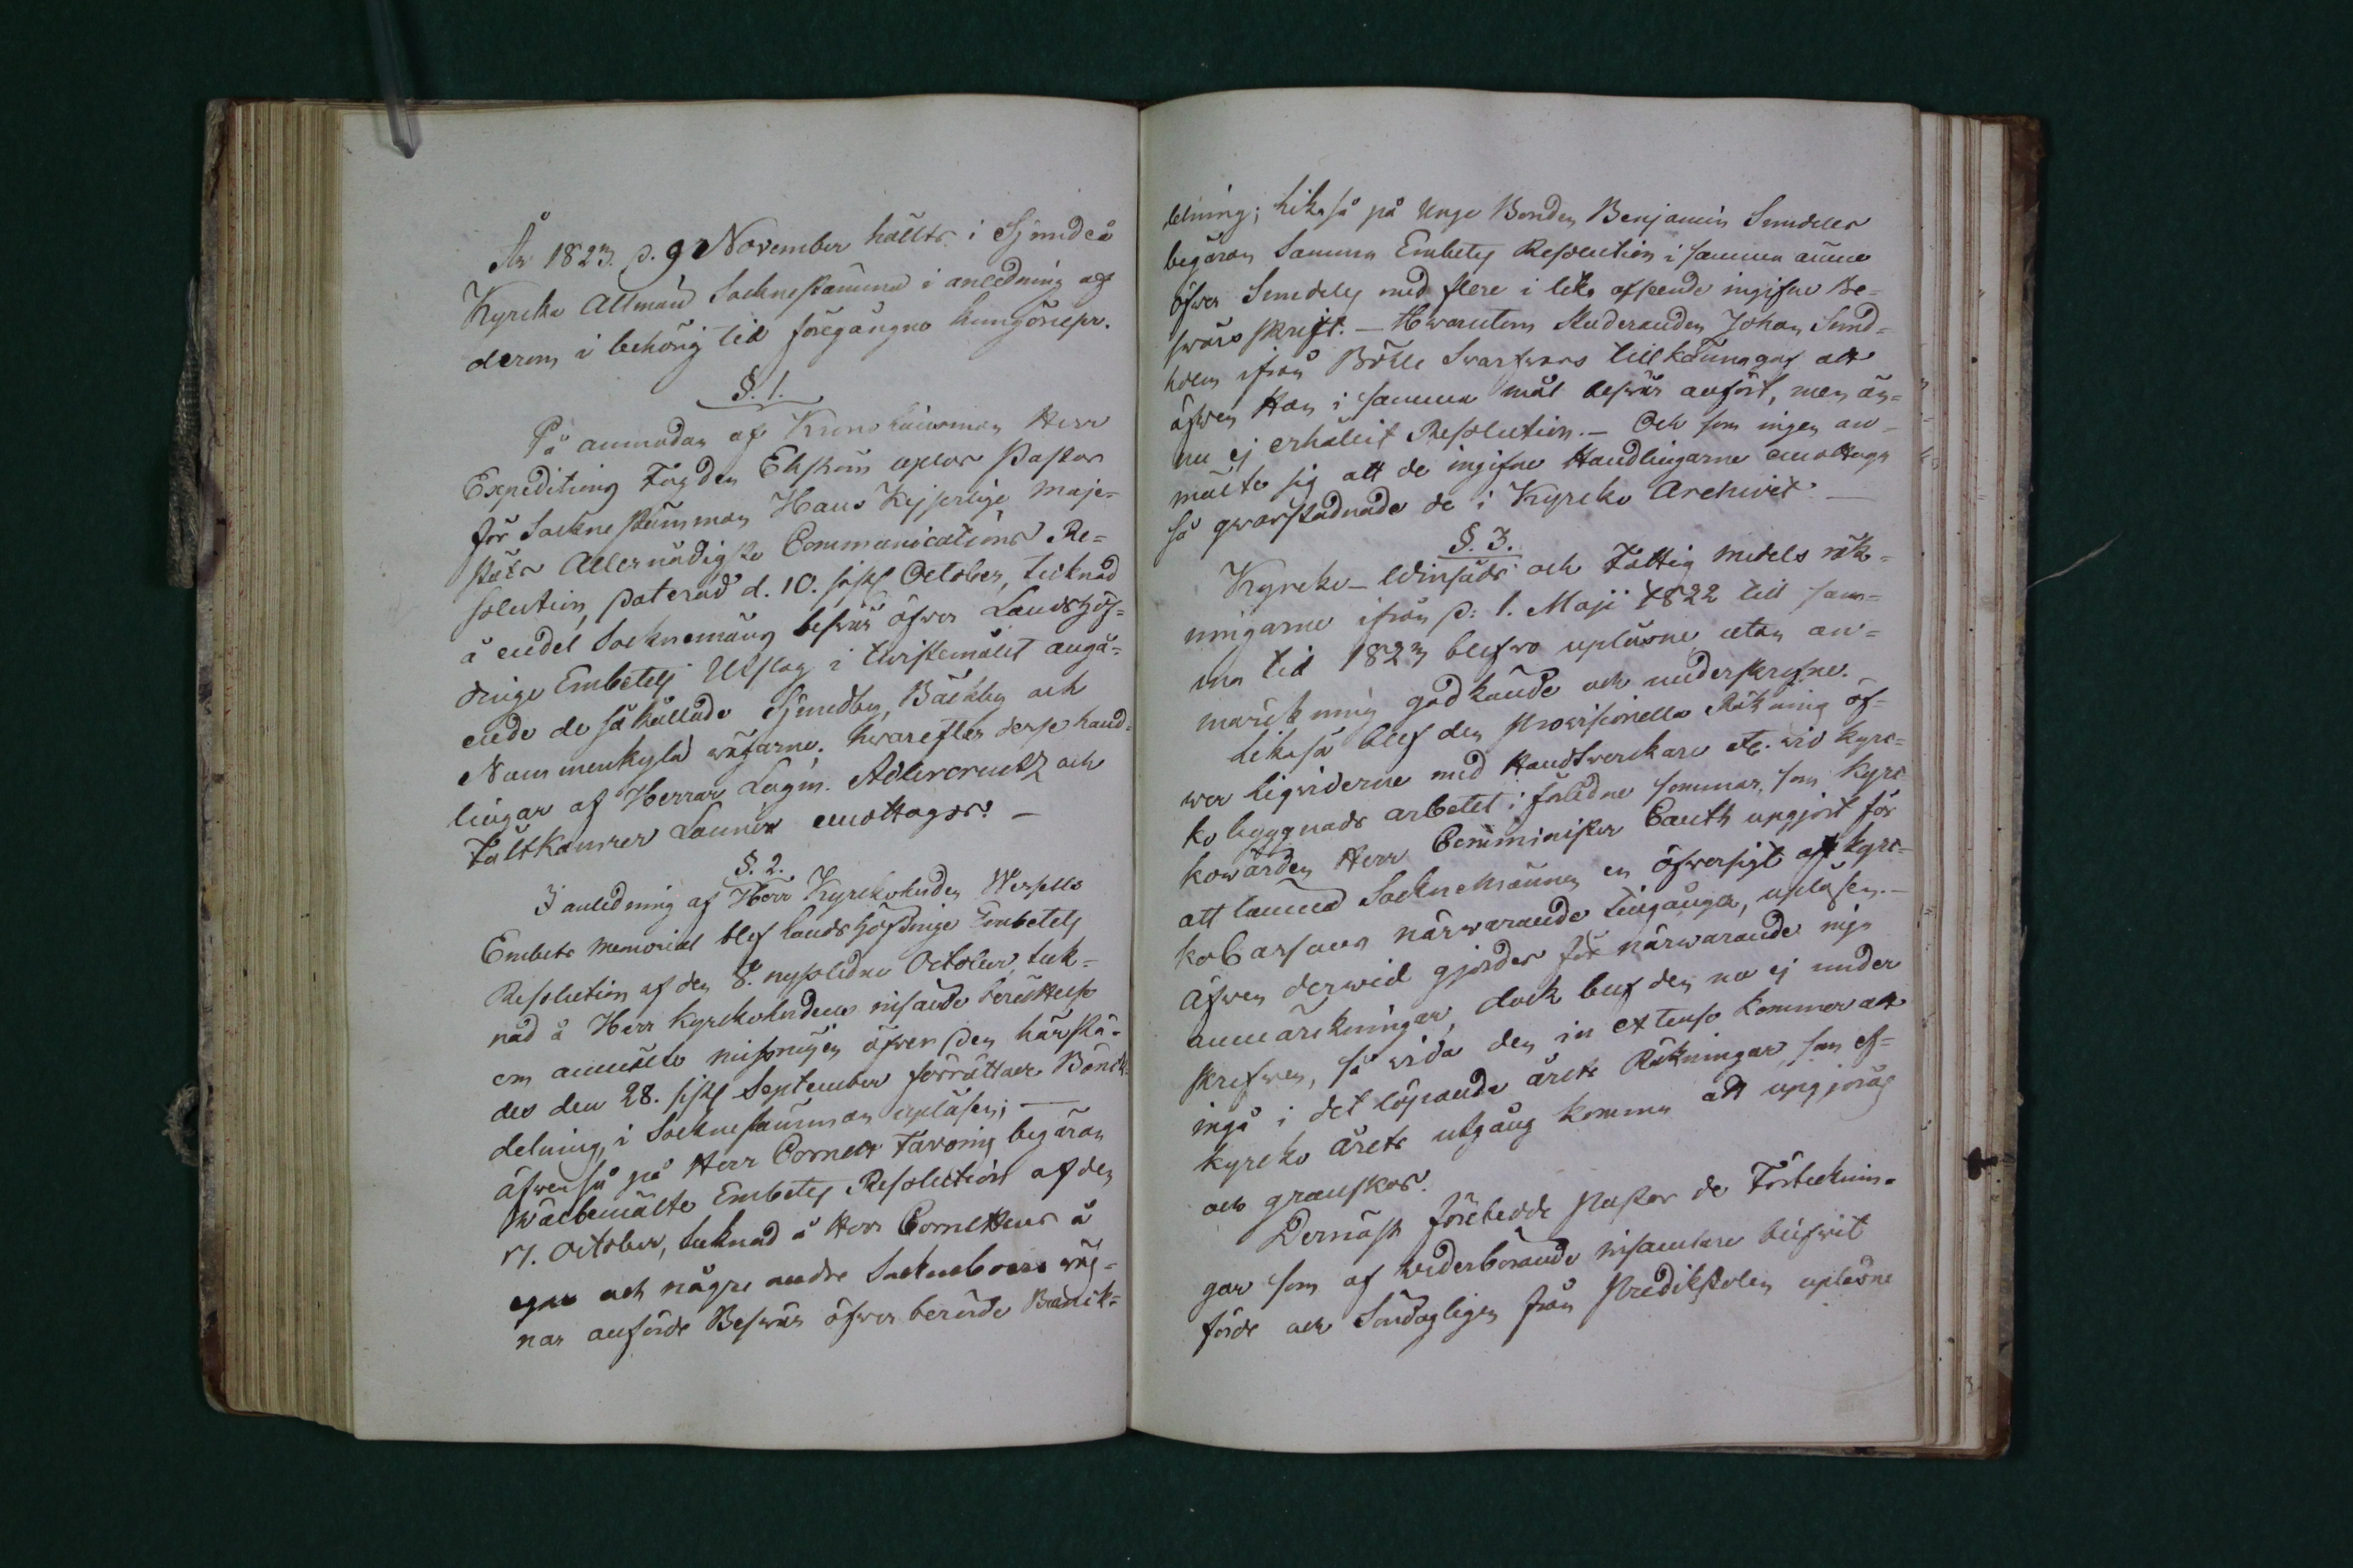 År 1823. d. 9 November hållts i Sjundeå
Kyrcka Allmän Sockne stämma i anledning af
derom i behörig tid föregången kungörelse.
§. 1.
På anmodan af Krono Länsman Herr
Expeditions Fogden Ekström uplas Pastor
för Sockne stämman Hans Kejserlige Maje-
stäts Allernådigste Communications Re-
solution, daterad d. 10. sistl. October, tecknad
å endel Socknemäns besvär öfver Landshöf-
dinge Embetets Utslag i tvistemålet angå-
ende de så kallade Sjundby, Bäckby och
Nummenkylä vägarne. hvarefter desse hand-
lingar af Herrar Lagm. Adlercreutz och
Fältkamrer Launer emottogos. -
§. 2.
I anledning af Herr Kyrckoherden Wessells
Embets memorial blef Landshöfdinge Embetets
Resolution af den 8. nystledne October, teck-
nad å Herr Kyrckoherdens insände berättelse
om anmälte missnöjen öfver den härstä-
des den 28. sistl. September förrättade Bänck-
delning, i Sockne stämman upläsen; -
äfven så på Herr Cornett Favorins begäran
Wälbemälte Embetes Resolution af den
17. October, tecknad å Herr Cornettens å
egne och någre andre Sockneboers väg-
nar anförde Besvär öfver berörde Bänck-
delning; likaså på Unge Bonden Benjamin Sundells
begäran Samma Embetes Resolution i samma ämne
öfver Sundells med flere i lika afseende ingifne Be-
svärs skrift. - Hwarutom Studeranden Johan Sund-
holm ifrån Bölle Svarfvars tillkännagaf att
äfven Han i samma mål besvär anfört, men än-
nu ej erhållit Resolution. - Och som ingen an-
mälte sig att de ingifne Handlingarne emottaga
så qvarstadnade de i Kyrcko Archivet. -
§. 3.
Kyrcko- Winsäds och Fattig medels räk-
ningarne ifrån d. 1. Maji 1822 till sam-
ma tid 1823 blefvo upläsne, utan an-
märckning godkände och underskrefne.
Likaså blef den provisionella Räkning öf-
ver liqviderne med Handtverckare etc. vid Kyrc-
ko byggnads arbetet i förledne sommar, som Kyrc-
kovärden Herr Comminister Cauth upgjort för
att lämna Socknemännen en öfversigt af Kyrc-
ko Cassans närvarande tilgångar, upläsen. -
Äfven dervid gjordes för närvarande inga
anmärckningar, dock blef den nu ej under
skrefven, så vida den in extenso kommer att
ingå i det löpande årets Räkningar, som ef-
kyrcko årets utgång komma att upgjöras
och granskas.
Dernäst företedde Pastor de Förtecknin-
gar som af vederbörande insamlare blifvit
förde och Söndagligen från Predikstolen upläsne